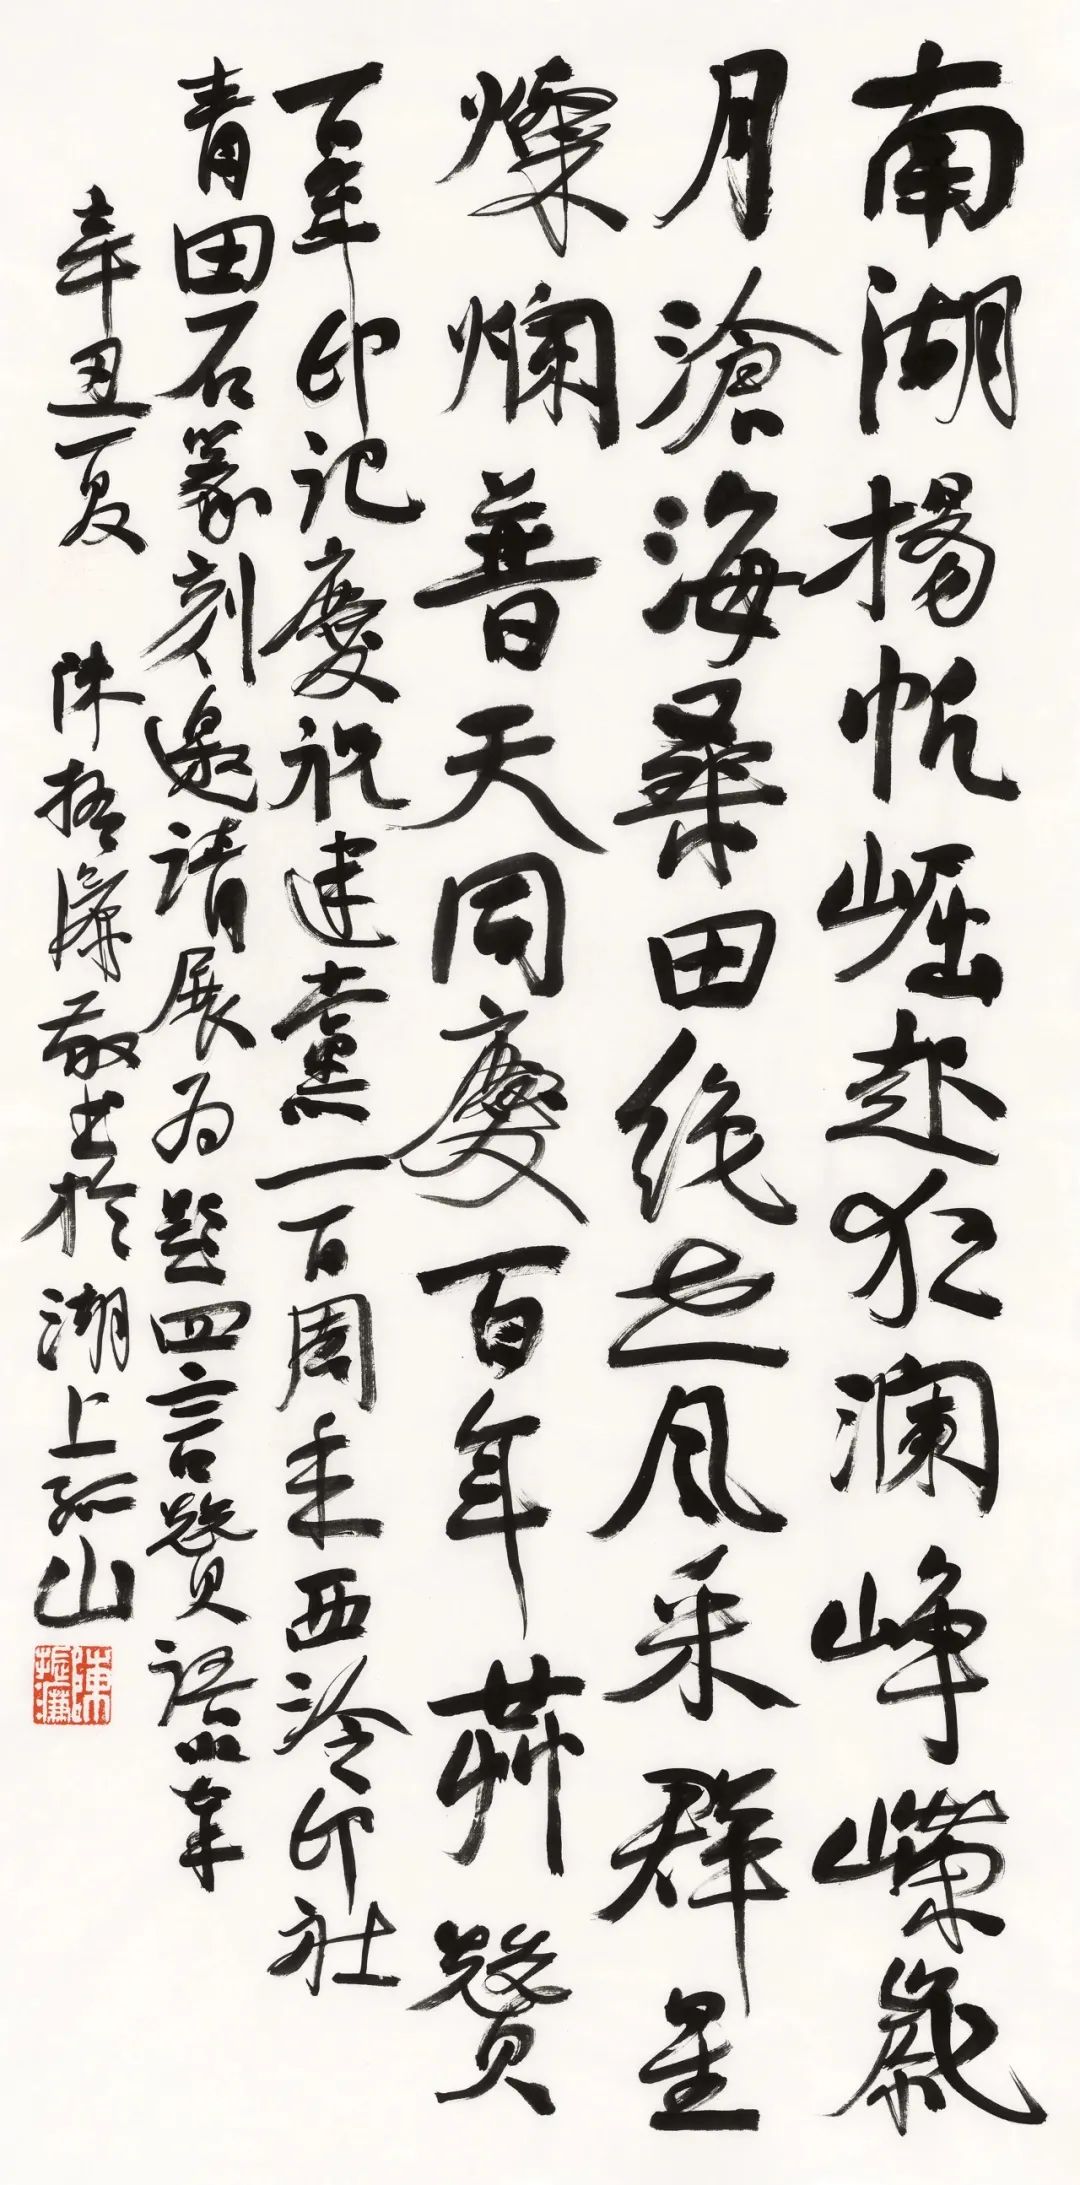 南湖揚帆崛起狂瀾崢嶸歲
月滄海桑田絕世风采群星
燦爛普天同慶百年華贊
百年印记慶祝建黨一百周年西泠印社
青田石篆刻邀请展为题四言贊语以奉
辛丑夏 陳振濂敬书於湖上孤山
陳振濂